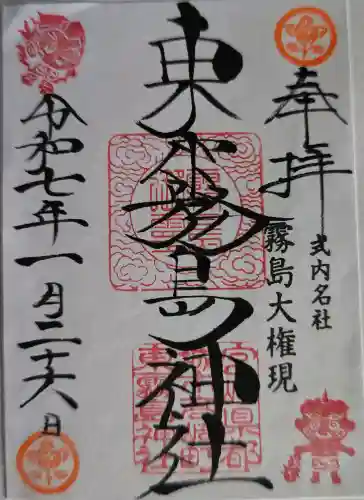 奉拝
式内名社
霧島大権現
東霧島神社
令和七年一月二十六日
東霧島神社